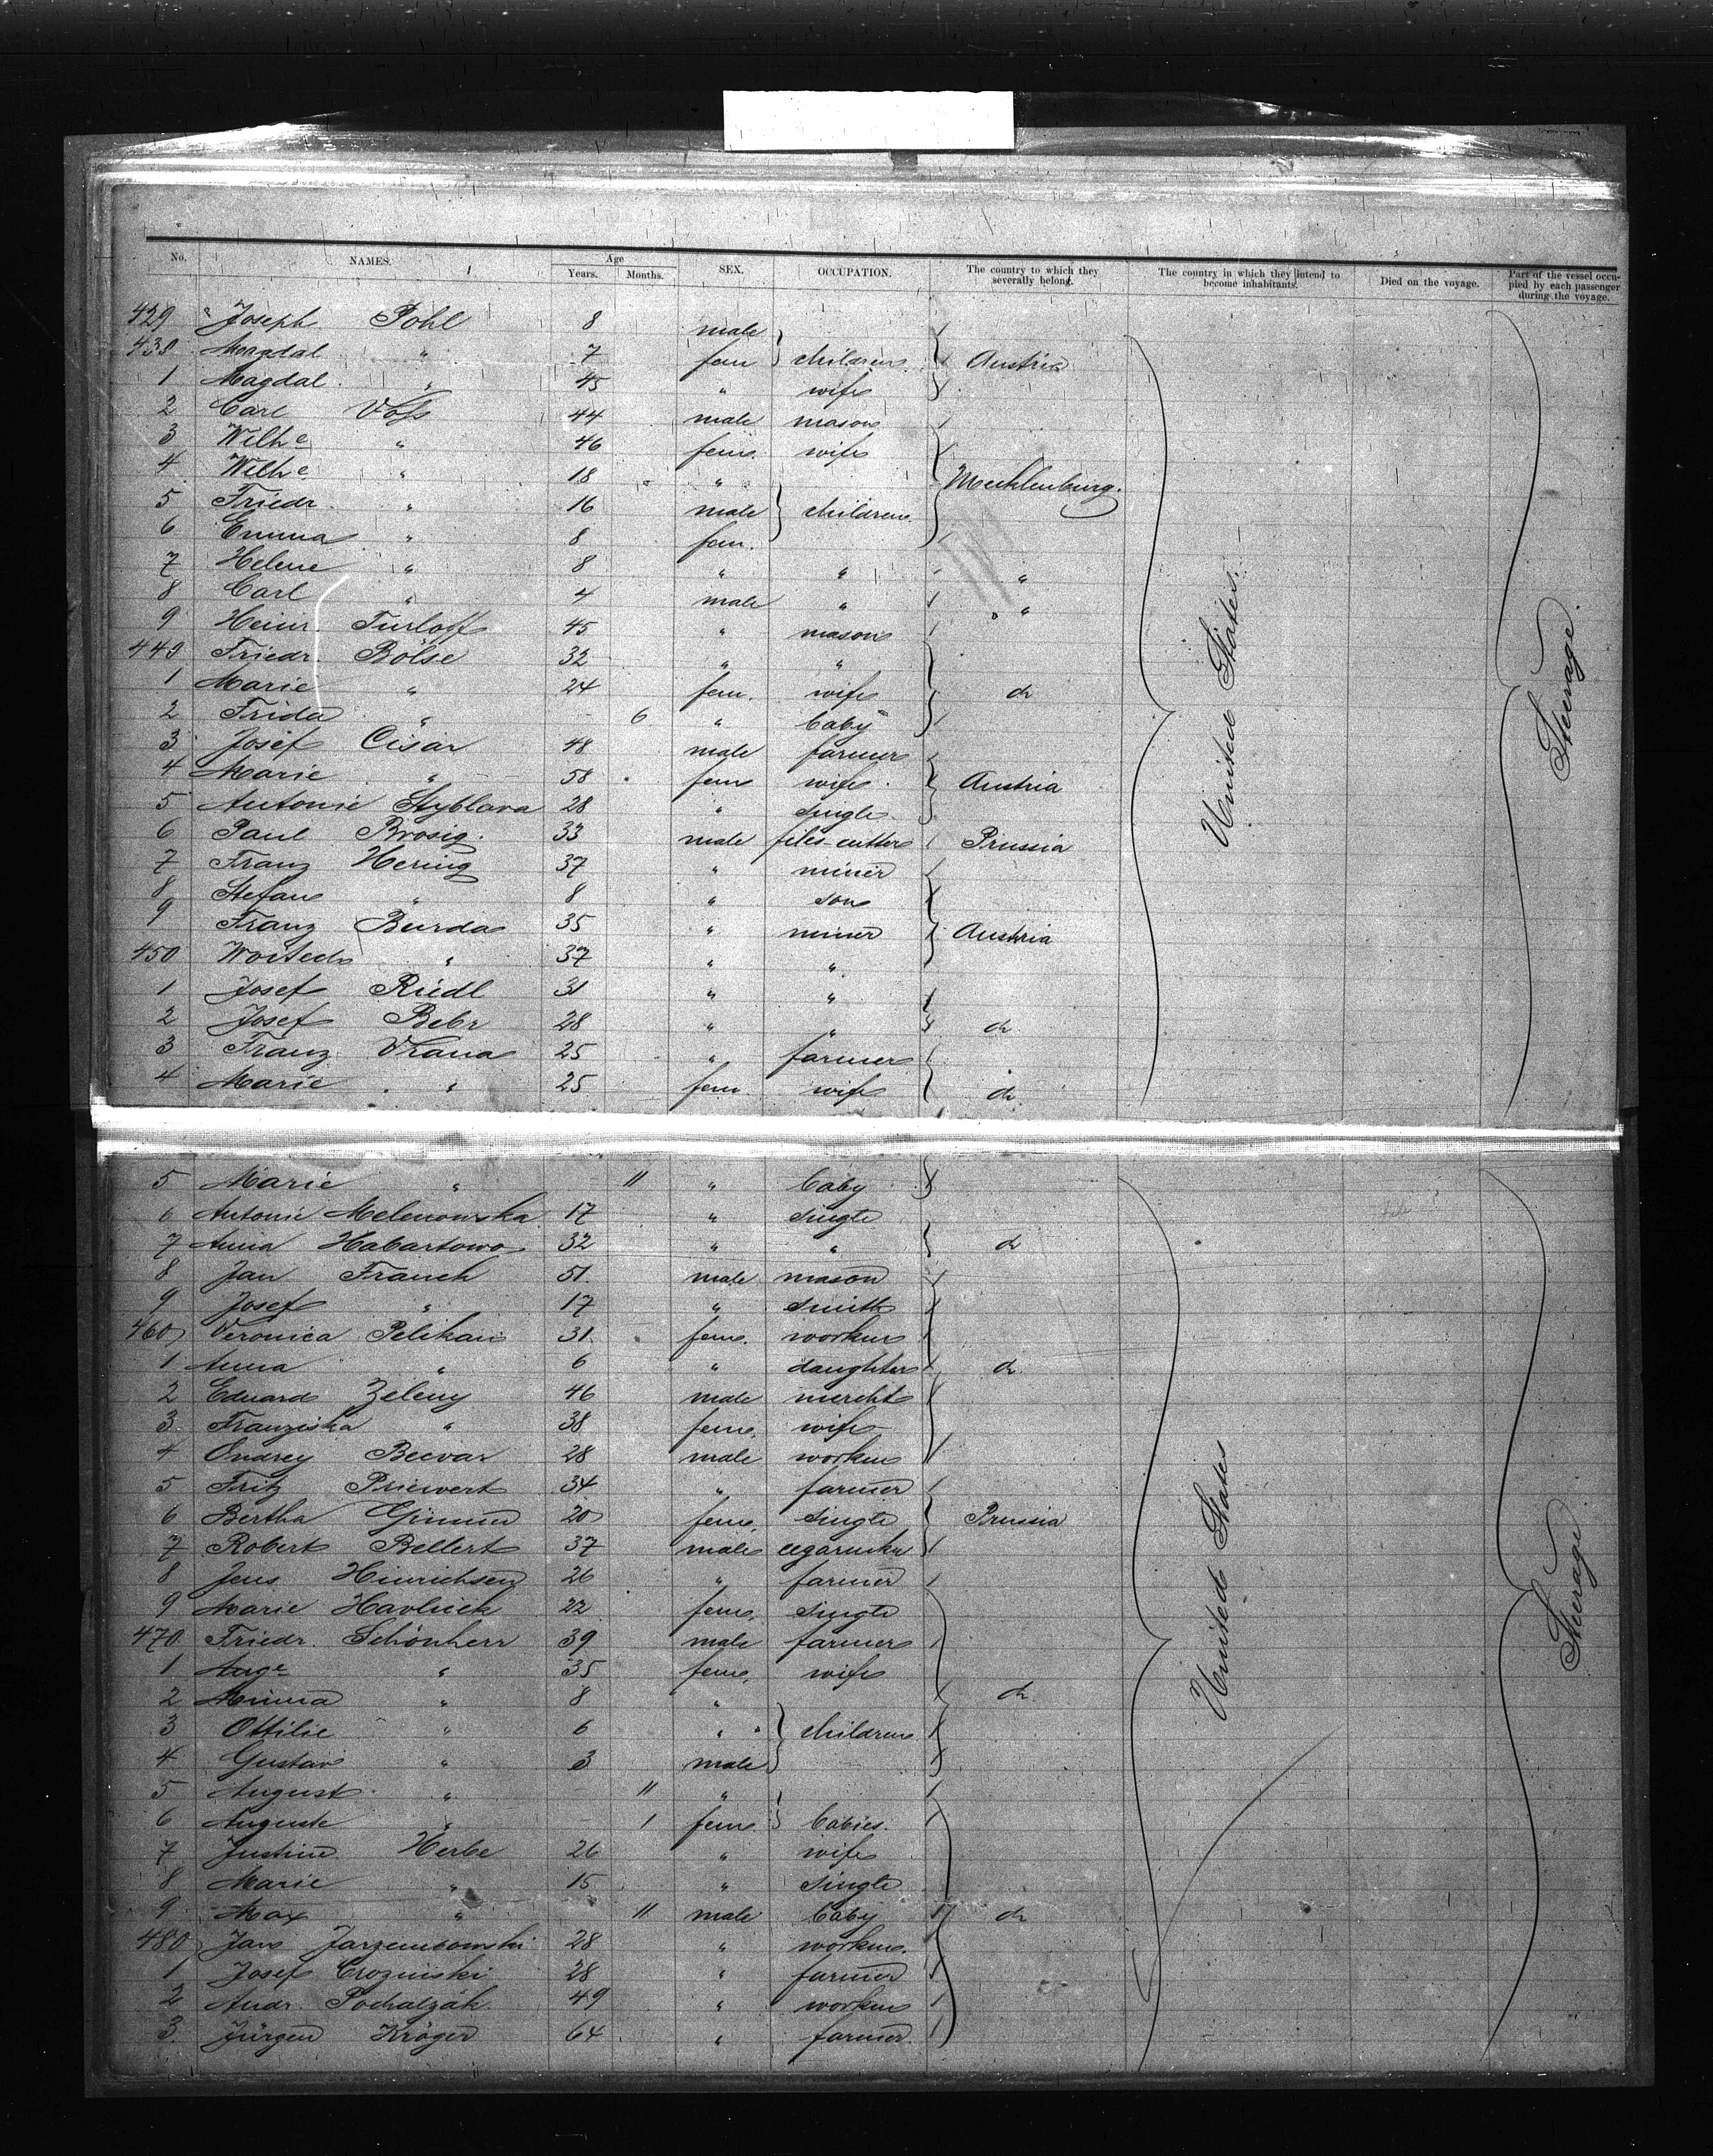 No. NAMES. Age Years. Months. SEX. OCCUPATION. The country to which they severally belong. The country in which they intend to become inhabitants. Died on the voyage. Part of the vessel occupied by each passenger during the voyage.
429 Joseph Pohl 8 male
430 Magdal " 7 fem children Austria
1 Magdal " 45 " wife
2 Carl Voss 44 male mason
3 Wilhe " 46 fem. wife
4 Wilhe " 18 " Mecklenburg.
5 Friedr. " 16 male children
6 Emma " 8 fem.
7 Helene " 8 " " "
8 Carl " 4 male " " "
9 Heinr. Turloff 45 " mason
440 Friedr. Bölse 32 " "
1 Marie " 24 fem. wife do
2 Frida " 6 " baby
3 Josef Cisar 48 male farmer
4 Marie " 58 fem wife Austria
5 Antonie Styblova 28 " single
6 Paul Brosig. 33 male files-cutter Prussia
7 Franz Hering 37 " miner
8 Stefan " 8 " son
9 Franz Burda 35 " miner Austria
450 Woitech " 37 " "
1 Josef Riedl 31 " "
2 Josef Bebr 28 " " do
3 Franz Vrana 25 " farmer
4 Marie " 25 fem wife do
United States.
Steerage.
5 Marie " 11 " baby
6 Antonie Melenowska 17 " single
7 Anna Habartowo 32 " " do
8 Jan Franck 51. male mason
9 Josef " 17 " smith
460 Veronica Pelikan 31. fem. worker
1 Anna " 6 " daughter do
2 Eduard Zeleny 46 male mercht
3 Franziska " 38 fem. wife
4 Ondrey Becvar 28 male worker
5 Fritz Priewert 34 " farmer
6 Bertha Grimm 20 fem. single Prussia
7 Robert Bellert 37 male cegarmker
8 Jens Hinrichsen 26 " farmer
9 Marie Havlicek 22 fem. single
470 Friedr. Schönherr 39 male farmer
1 Auge " 35 fem. wife
2 Minna " 8 " do
3 Ottilie " 6 " children
4 Gustav " 3 male
5 August " 11 "
6 Auguste " 1 fem babies.
7 Justine Herbe 26 " wife
8 Marie " 15 " single
9 Max " 11 male baby do
480 Jan Jarzembowski 28 " worker.
1 Josef Crozinski 28 " farmer
2 Andr. Pochalzák 49 " worker
3. Jürgen Kröger 64 " farmer.
United States
Steerage